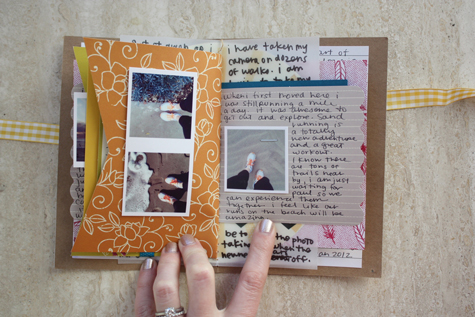 i have taken my
camera on dozens
of walks. i am
when i first moved here i
was still running a mile
a day. it was awesome to
get out and explore. Sand
running is
a totally
new adventure
and a great
workout.
i know there
are tons of
trails near
by. i am just
waiting for
paul so we
can experience them
together. i feel like our
runs on the beach will be
amazing.
be to the photo
taking when the
off.
an 2012.